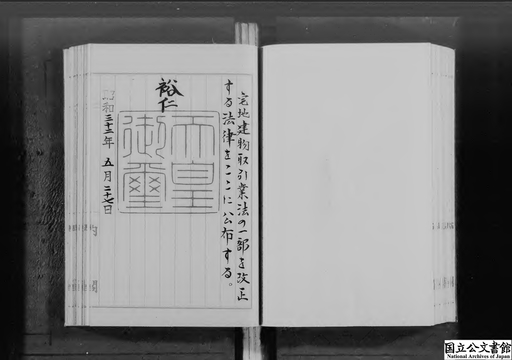 宅地建物取引業法の一部を改正
する法律をここに公布する。
裕仁
天皇
御璽
昭和三十二年五月二十七日
内閣
国立公文書館
National Archives of Japan